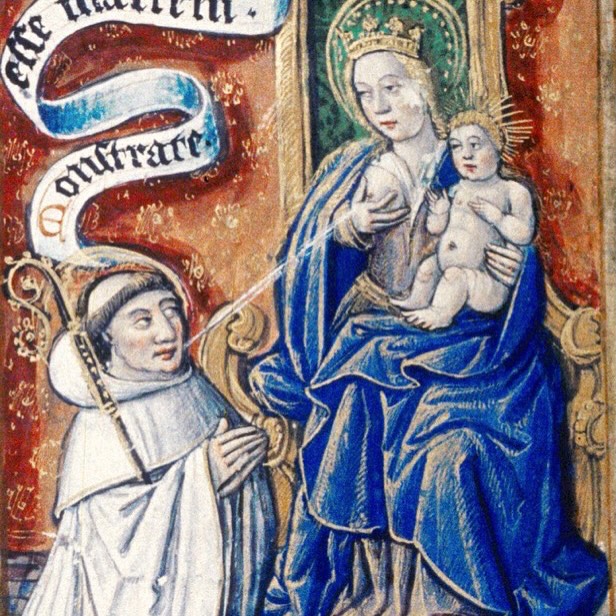 Monstrate.
esse matrem.